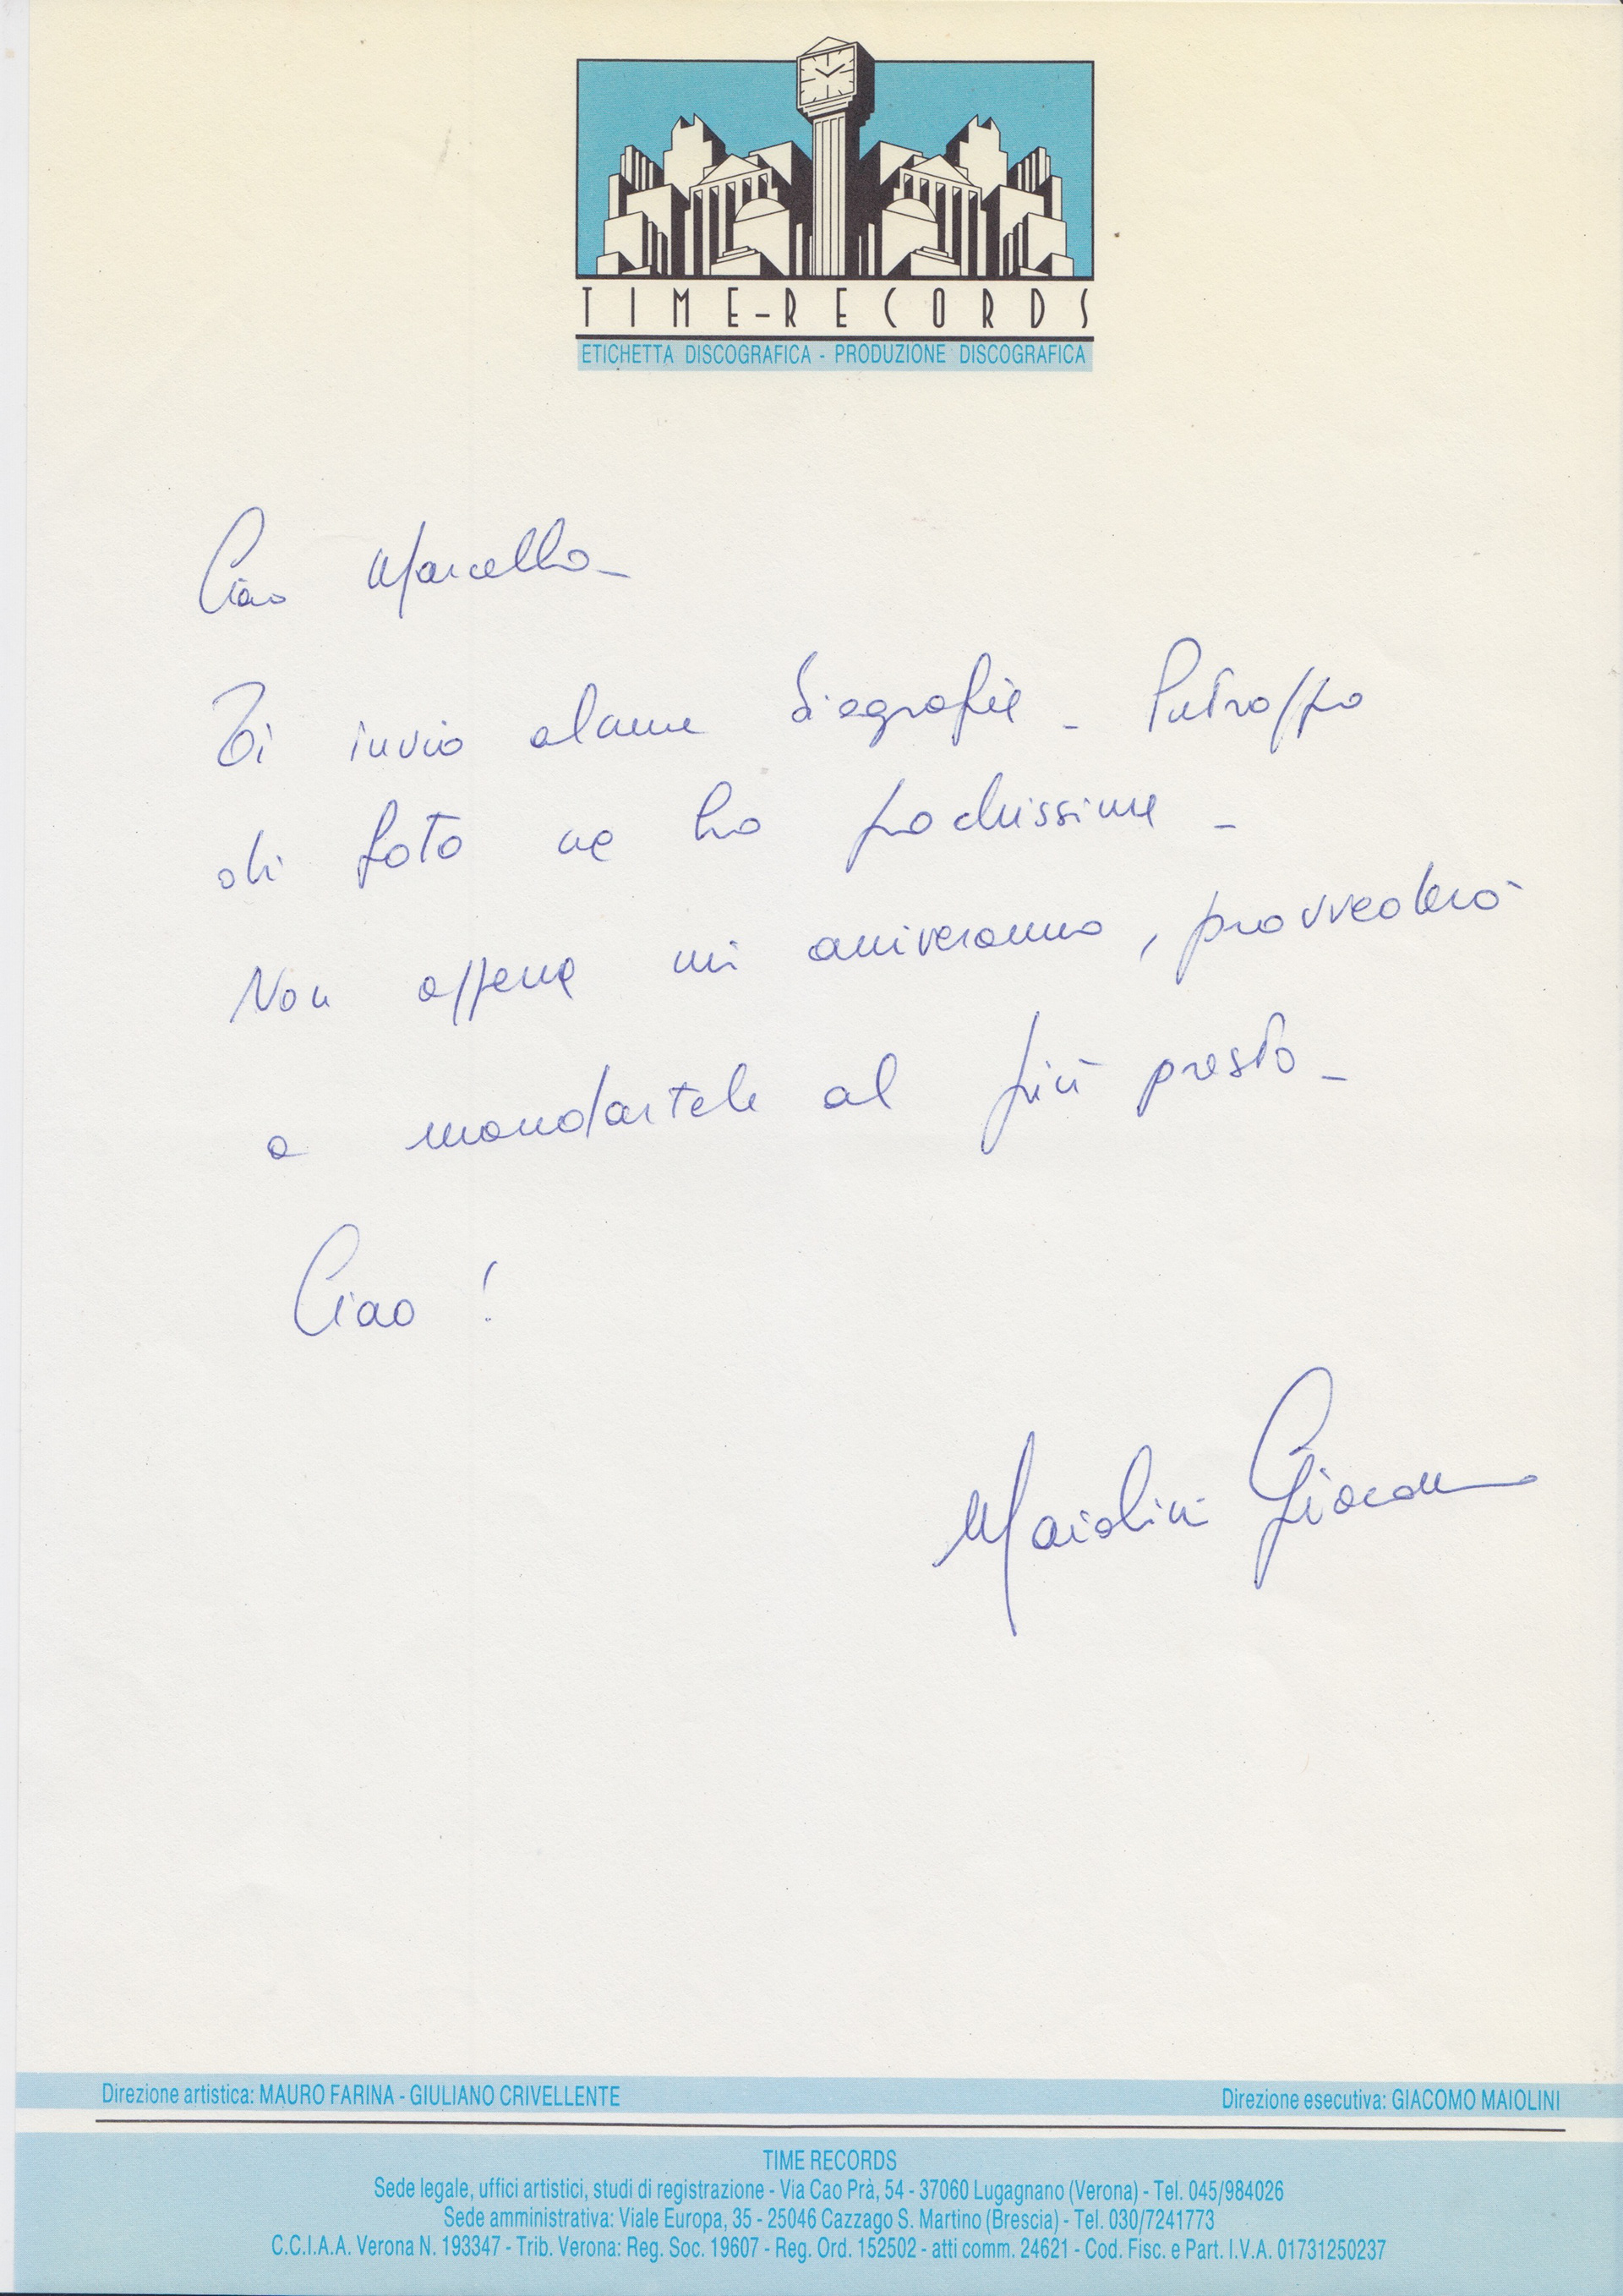 TIME-RECORDS
ETICHETTA DISCOGRAFICA - PRODUZIONE DISCOGRAFICA
Ciao Marcello -
Ti invio alcune biografie - Putroppo
di foto ne ho pochissime -
Non appena mi arriveranno, provvederò
a mandartele al più presto -
Ciao !
Maiolini Giacomo
Direzione artistica: MAURO FARINA - GIULIANO CRIVELLENTE
Direzione esecutiva: GIACOMO MAIOLINI
TIME RECORDS
Sede legale, uffici artistici, studi di registrazione - Via Cao Prà, 54 - 37060 Lugagnano (Verona) - Tel. 045/984026
Sede amministrativa: Viale Europa, 35 - 25046 Cazzago S. Martino (Brescia) - Tel. 030/7241773
C.C.I.A.A. Verona N. 193347 - Trib. Verona: Reg. Soc. 19607 - Reg. Ord. 152502 - atti comm. 24621 - Cod. Fisc. e Part. I.V.A. 01731250237